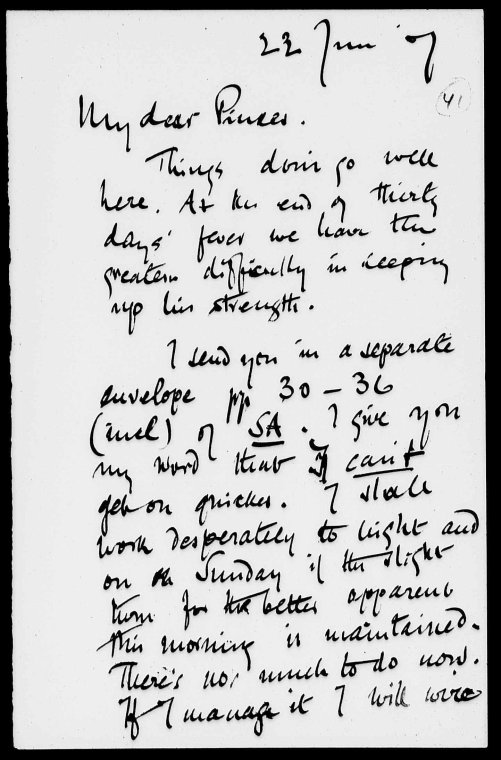 22 June 07
41
My dear Pinker.
Things don't go well
here. At the end of thirty
days' fever we have the
greatest difficulty in keeping
up his strength.
I send you in a separate
envelope pp 30 – 36
(incl) of SA. I give you
my word that I can't
get on quicker. I shall
work desperately to night and
on Sunday if the slight
turn for the better apparent
this morning is maintained.
There's not much to do now.
If I manage it I will wire